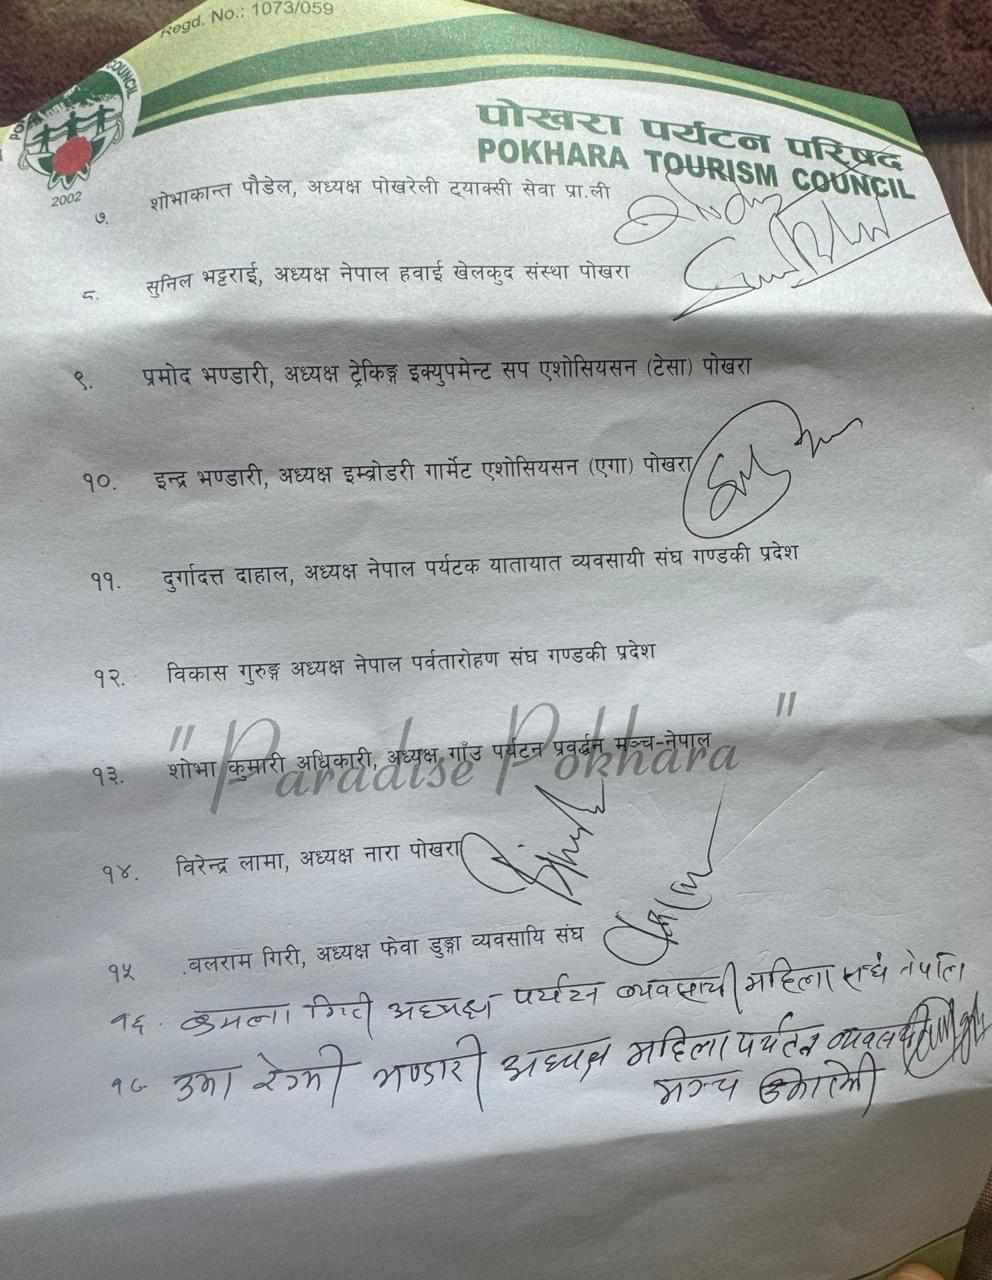 Regd. No.: 1073/059
COUNCIL
2002
पोखरा पर्यटन परिषद
POKHARA TOURISM COUNCIL
७. शोभाकान्त पौडेल, अध्यक्ष पोखरेली ट्याक्सी सेवा प्रा.ली
८. सुनिल भट्टराई, अध्यक्ष नेपाल हवाई खेलकुद संस्था पोखरा
९. प्रमोद भण्डारी, अध्यक्ष ट्रेकिङ्ग इक्युपमेन्ट सप एशोसियसन (टेसा) पोखरा
१०. इन्द्र भण्डारी, अध्यक्ष इम्ब्रोडरी गार्मेट एशोसियसन (एगा) पोखरा
११. दुर्गादत्त दाहाल, अध्यक्ष नेपाल पर्यटक यातायात व्यवसायी संघ गण्डकी प्रदेश
१२. विकास गुरुङ्ग अध्यक्ष नेपाल पर्वतारोहण संघ गण्डकी प्रदेश
१३. शोभा कुमारी अधिकारी, अध्यक्ष गाँउ पर्यटन प्रवर्द्धन मञ्च-नेपाल
" Paradise Pokhara "
१४. विरेन्द्र लामा, अध्यक्ष नारा पोखरा
१५ .बलराम गिरी, अध्यक्ष फेवा डुङ्गा व्यवसायि संघ
१६. कमला गिरी अध्यक्ष पर्यटन व्यवसायी महिला संघ नेपाल
१७ उमा रेग्मी भण्डारी अध्यक्ष महिला पर्यटन व्यवसायी
मञ्च